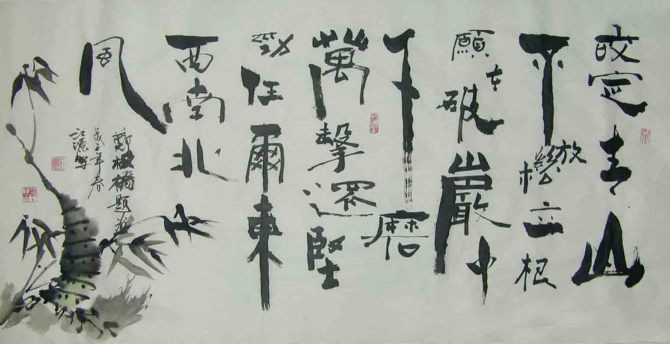 咬定青山
不放鬆立根
願在破巖中
千磨
萬擊還堅
勁任爾東
西南北
風
鄭板橋題
年春